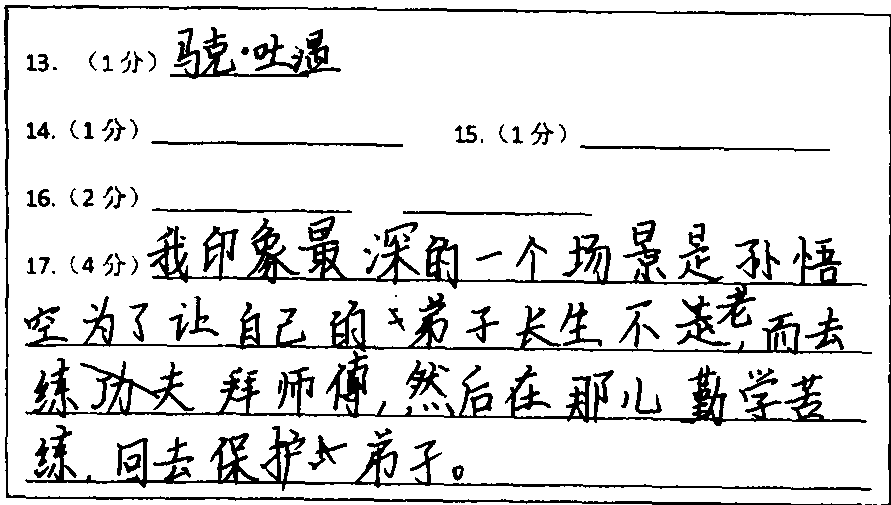 13. （1分）马克·吐温
14.（1分） 15.（1分）
16.（2分）
17.（4分）我印象最深的一个场景是孙悟
空为了让自己的弟子长生不老,而去
练功夫拜师傅,然后在那儿勤学苦
练,回去保护弟子。